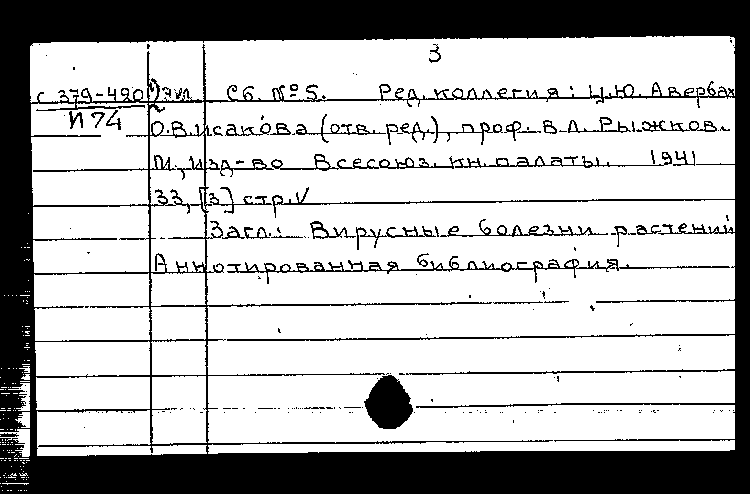 3
с 379-420 Сб. № 5. Ред. коллегия: Ц.Ю. Авербах
И 74 О.В. Исакова (отв. ред.), проф. В.Л. Рыжков.
М., Изд-во Всесоюз. кн. палаты. 1941
33, [3] стр. V
Загл.: Вирусные болезни растений
Аннотированная библиография.